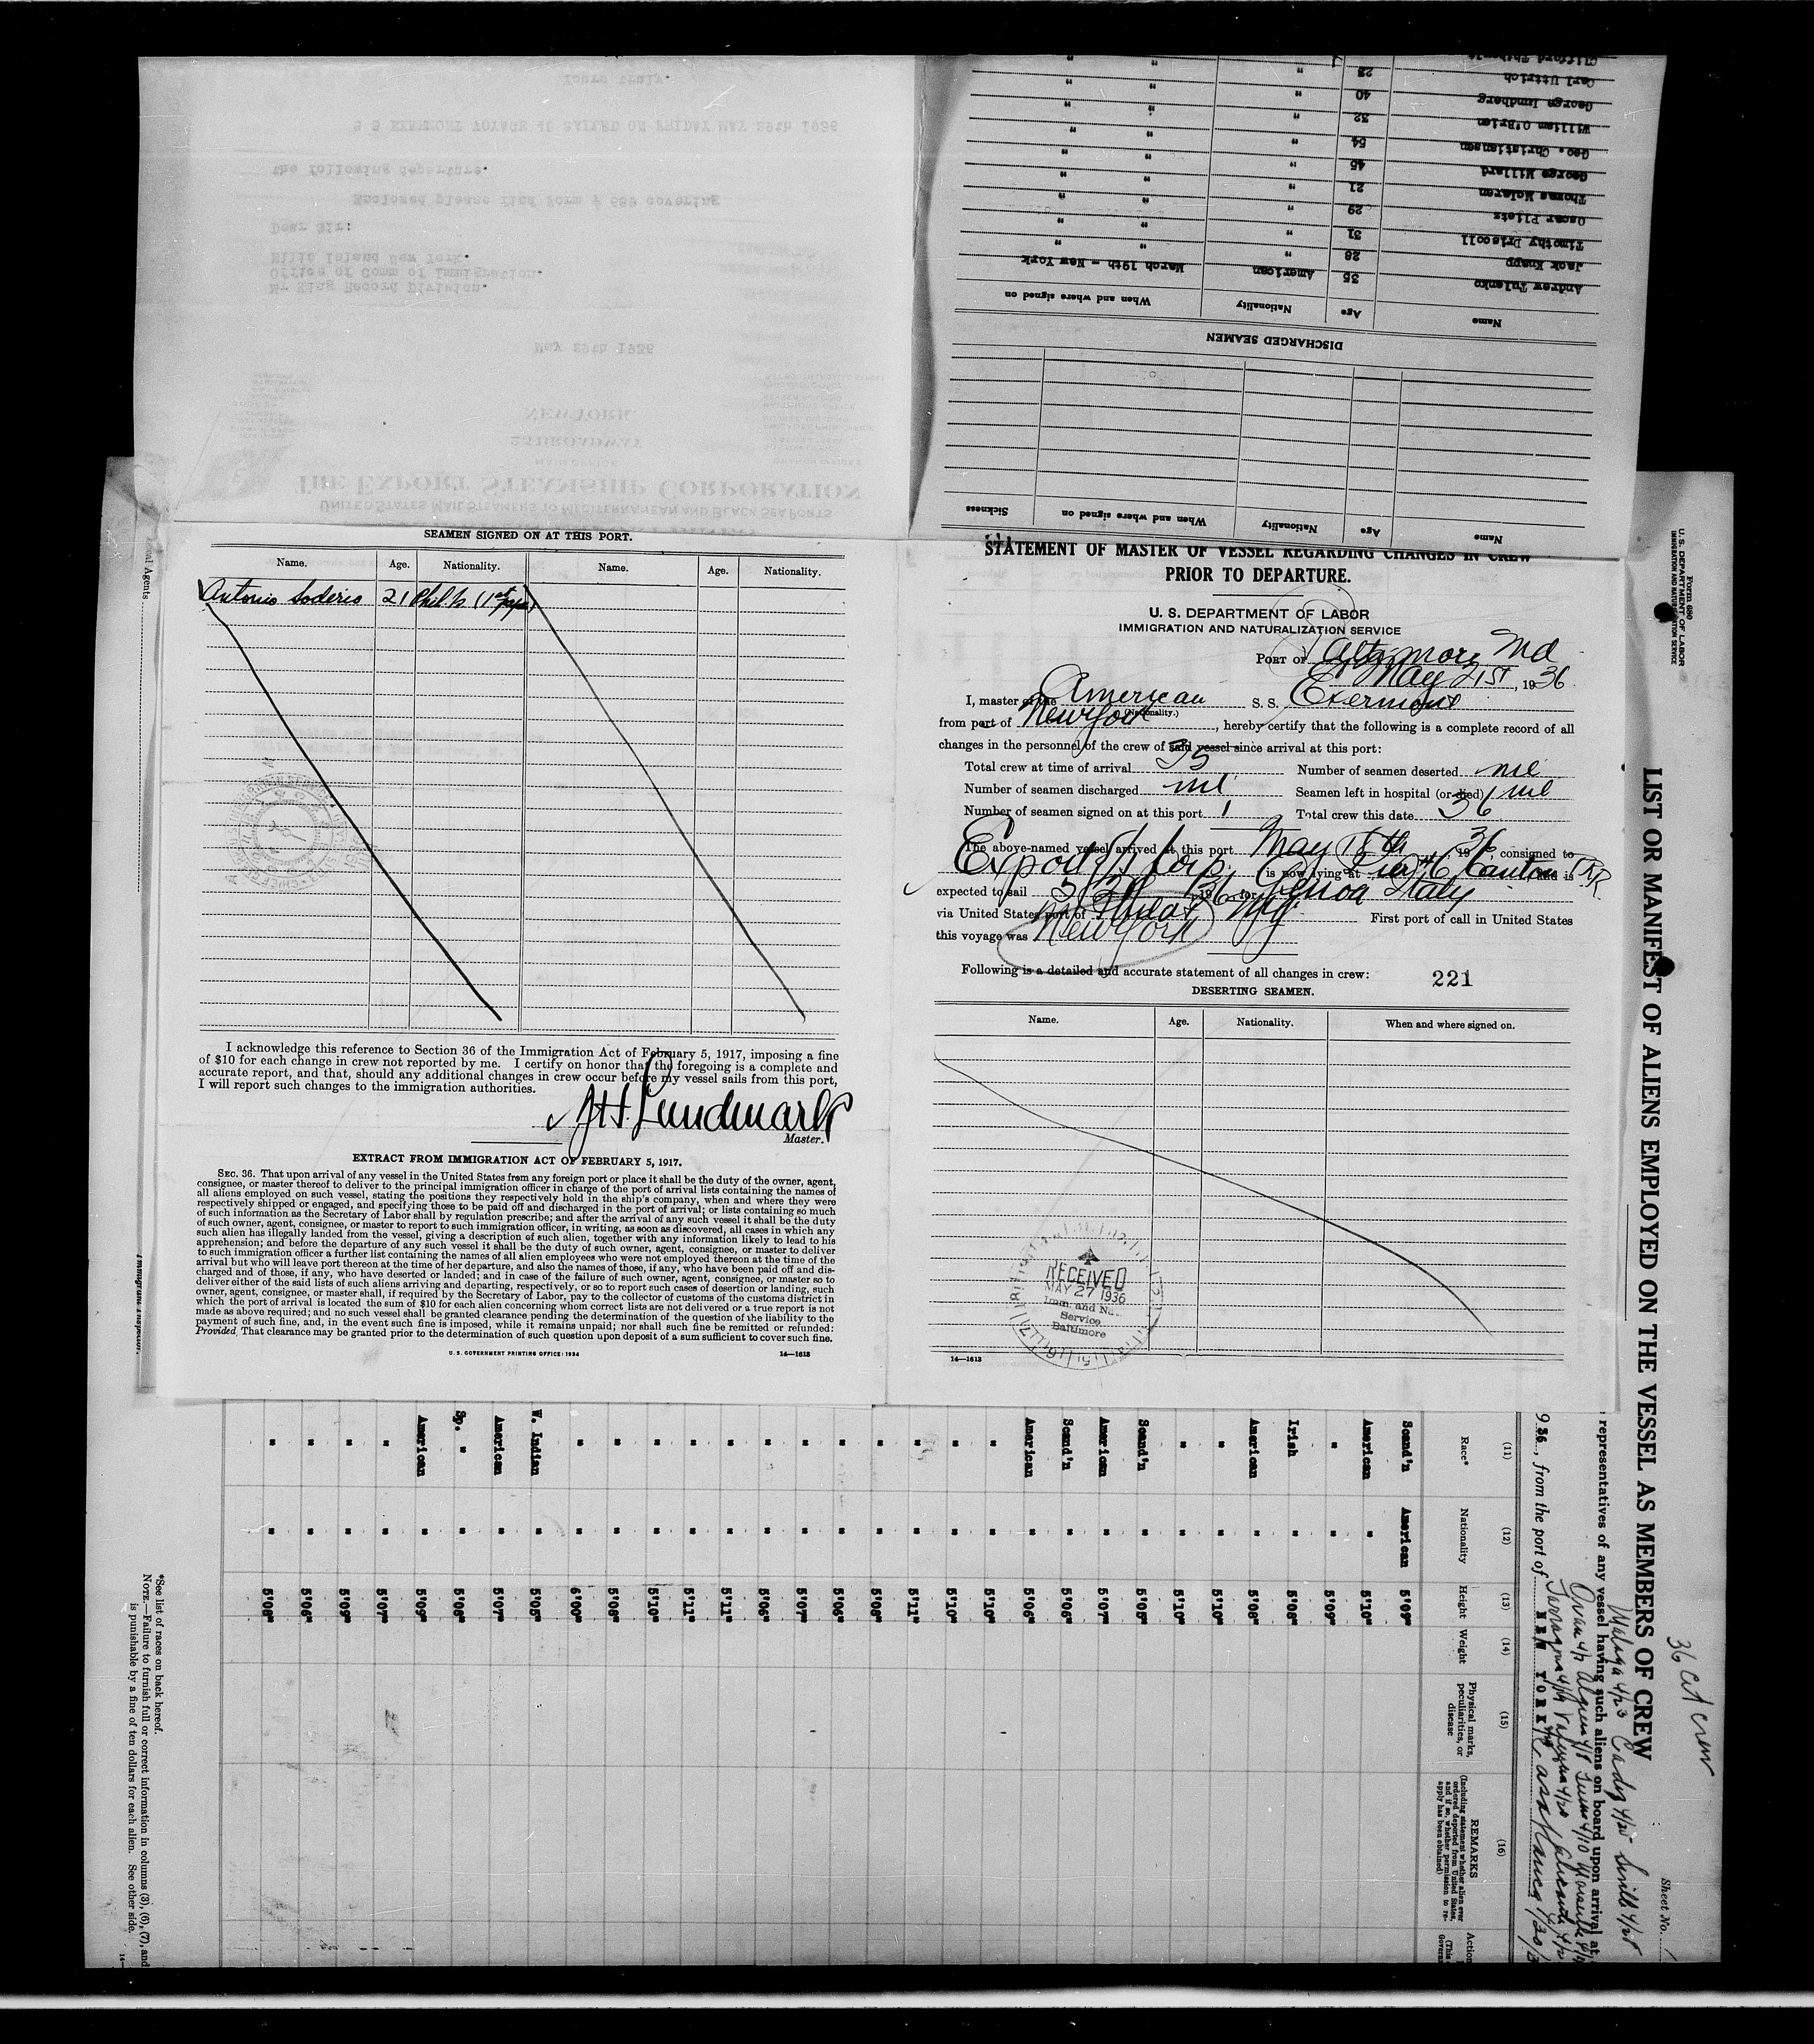 Yours truly.
S S EXERMONT VOYAGE 46 SAILED ON FRIDAY MAY 29th 1936
the following departure.
Enclosed please find Form # 689 covering
Dear Sir:
Ellis Island New York.
Office of Comm of Immigration.
Mr King Record Division.
May 29th 1936
NEW YORK
25 BROADWAY
THE EXPORT STEAMSHIP CORPORATION
UNITED STATES MAIL STEAMERS TO MEDITERRANEAN AND BLACK SEA PORTS
Carl Uttrich 23 " " "
George Lundberg 40 " " "
William O'Brien 32 " " "
Geo. Christiansen 54 " " "
George Willard 45 " " "
Thomas McLaren 21 " " "
Oscar Plietz 29 " " "
Timothy Driscoll 31 " " "
Jack Knapp 28 " " "
Andrew Tulenko 35 American March 19th - New York
Name Age Nationality When and where signed on
DISCHARGED SEAMEN
Name Age Nationality When and where signed on Sickness
SEAMEN SIGNED ON AT THIS PORT.
Name. Age. Nationality. Name. Age. Nationality.
Antonio Soderio 21
I acknowledge this reference to Section 36 of the Immigration Act of February 5, 1917, imposing a fine
of $10 for each change in crew not reported by me. I certify on honor that the foregoing is a complete and
accurate report, and that, should any additional changes in crew occur before my vessel sails from this port,
I will report such changes to the immigration authorities.
Master.
EXTRACT FROM IMMIGRATION ACT OF FEBRUARY 5, 1917.
SEC. 36. That upon arrival of any vessel in the United States from any foreign port or place it shall be the duty of the owner, agent,
consignee, or master thereof to deliver to the principal immigration officer in charge of the port of arrival lists containing the names of
all aliens employed on such vessel, stating the positions they respectively hold in the ship's company, when and where they were
respectively shipped or engaged, and specifying those to be paid off and discharged in the port of arrival; or lists containing so much
of such information as the Secretary of Labor shall by regulation prescribe; and after the arrival of any such vessel it shall be the duty
of such owner, agent, consignee, or master to report to such immigration officer, in writing, as soon as discovered, all cases in which any
such alien has illegally landed from the vessel, giving a description of such alien, together with any information likely to lead to his
apprehension; and before the departure of any such vessel it shall be the duty of such owner, agent, consignee, or master to deliver
to such immigration officer a further list containing the names of all alien employees who were not employed thereon at the time of the
arrival but who will leave port thereon at the time of her departure, and also the names of those, if any, who have been paid off and dis-
charged and of those, if any, who have deserted or landed; and in case of the failure of such owner, agent, consignee, or master so to
deliver either of the said lists of such aliens arriving and departing, respectively, or so to report such cases of desertion or landing, such
owner, agent, consignee, or master shall, if required by the Secretary of Labor, pay to the collector of customs of the customs district in
which the port of arrival is located the sum of $10 for each alien concerning whom correct lists are not delivered or a true report is not
made as above required; and no such vessel shall be granted clearance pending the determination of the question of the liability to the
payment of such fine, and, in the event such fine is imposed, while it remains unpaid; nor shall such fine be remitted or refunded:
Provided, That clearance may be granted prior to the determination of such question upon deposit of a sum sufficient to cover such fine.
U. S. GOVERNMENT PRINTING OFFICE: 1934 14—1613
STATEMENT OF MASTER OF VESSEL REGARDING CHANGES IN CREW
PRIOR TO DEPARTURE.
U. S. DEPARTMENT OF LABOR
IMMIGRATION AND NATURALIZATION SERVICE
PORT OF Baltimore Md
May 21st, 1936
I, master of the American S. S. Exermont
(Nationality.)
from port of New York, hereby certify that the following is a complete record of all
changes in the personnel of the crew of said vessel since arrival at this port:
Total crew at time of arrival 35 Number of seamen deserted nil
Number of seamen discharged nil Seamen left in hospital (or died) nil
Number of seamen signed on at this port 1 Total crew this date 36
The above-named vessel arrived at this port May 18th, 1936, consigned to
Export SS Corp, is now lying at Pier #6 Canton PRR and is
expected to sail 1936 for Genoa Italy
via United States port of First port of call in United States
this voyage was New York
Following is a detailed and accurate statement of all changes in crew:
221
DESERTING SEAMEN.
Name. Age. Nationality. When and where signed on.
RECEIVED
MAY 27 1936
Imm. and Nat.
Service
Baltimore
14—1613
Form 680
U. S. DEPARTMENT OF LABOR
IMMIGRATION AND NATURALIZATION SERVICE
LIST OR MANIFEST OF ALIENS EMPLOYED ON THE VESSEL AS MEMBERS OF CREW
Sheet No. 1
36 cit crew
representatives of any vessel having such aliens on board upon arrival at
936, from the port of NEW YORK
(11) (12) (13) (14) (15) (16)
Race* Nationality Height Weight Physical marks, peculiarities, or disease REMARKS
(Including statement whether alien ever ordered deported from United States, and if so, whether permission to reapply has been obtained)
Scand'n American 5'09"
American " 5'10"
" " 5'09"
Irish " 5'08"
American " 5'08"
" " 5'10"
" " 5'10"
Scand'n " 5'05"
American " 5'07"
Scand'n " 5'06"
American " 5'06"
" " 5'10"
" " 5'10"
" " 5'11"
" " 5'08"
" " 5'06"
" " 5'07"
" " 5'06"
" " 5'11"
" " 5'11"
" " 5'10"
" " 5'08"
" " 6'00"
W. Indian " 5'05"
American " 5'07"
Sp. " " 5'08"
American " 5'09"
" " 5'07"
" " 5'09"
" " 5'06"
" " 5'08"
*See list of races on back hereof.
NOTE.—Failure to furnish full or correct information in columns (3), (6), (7), and
is punishable by a fine of ten dollars for each alien. See other side.
Immigrant Inspector.